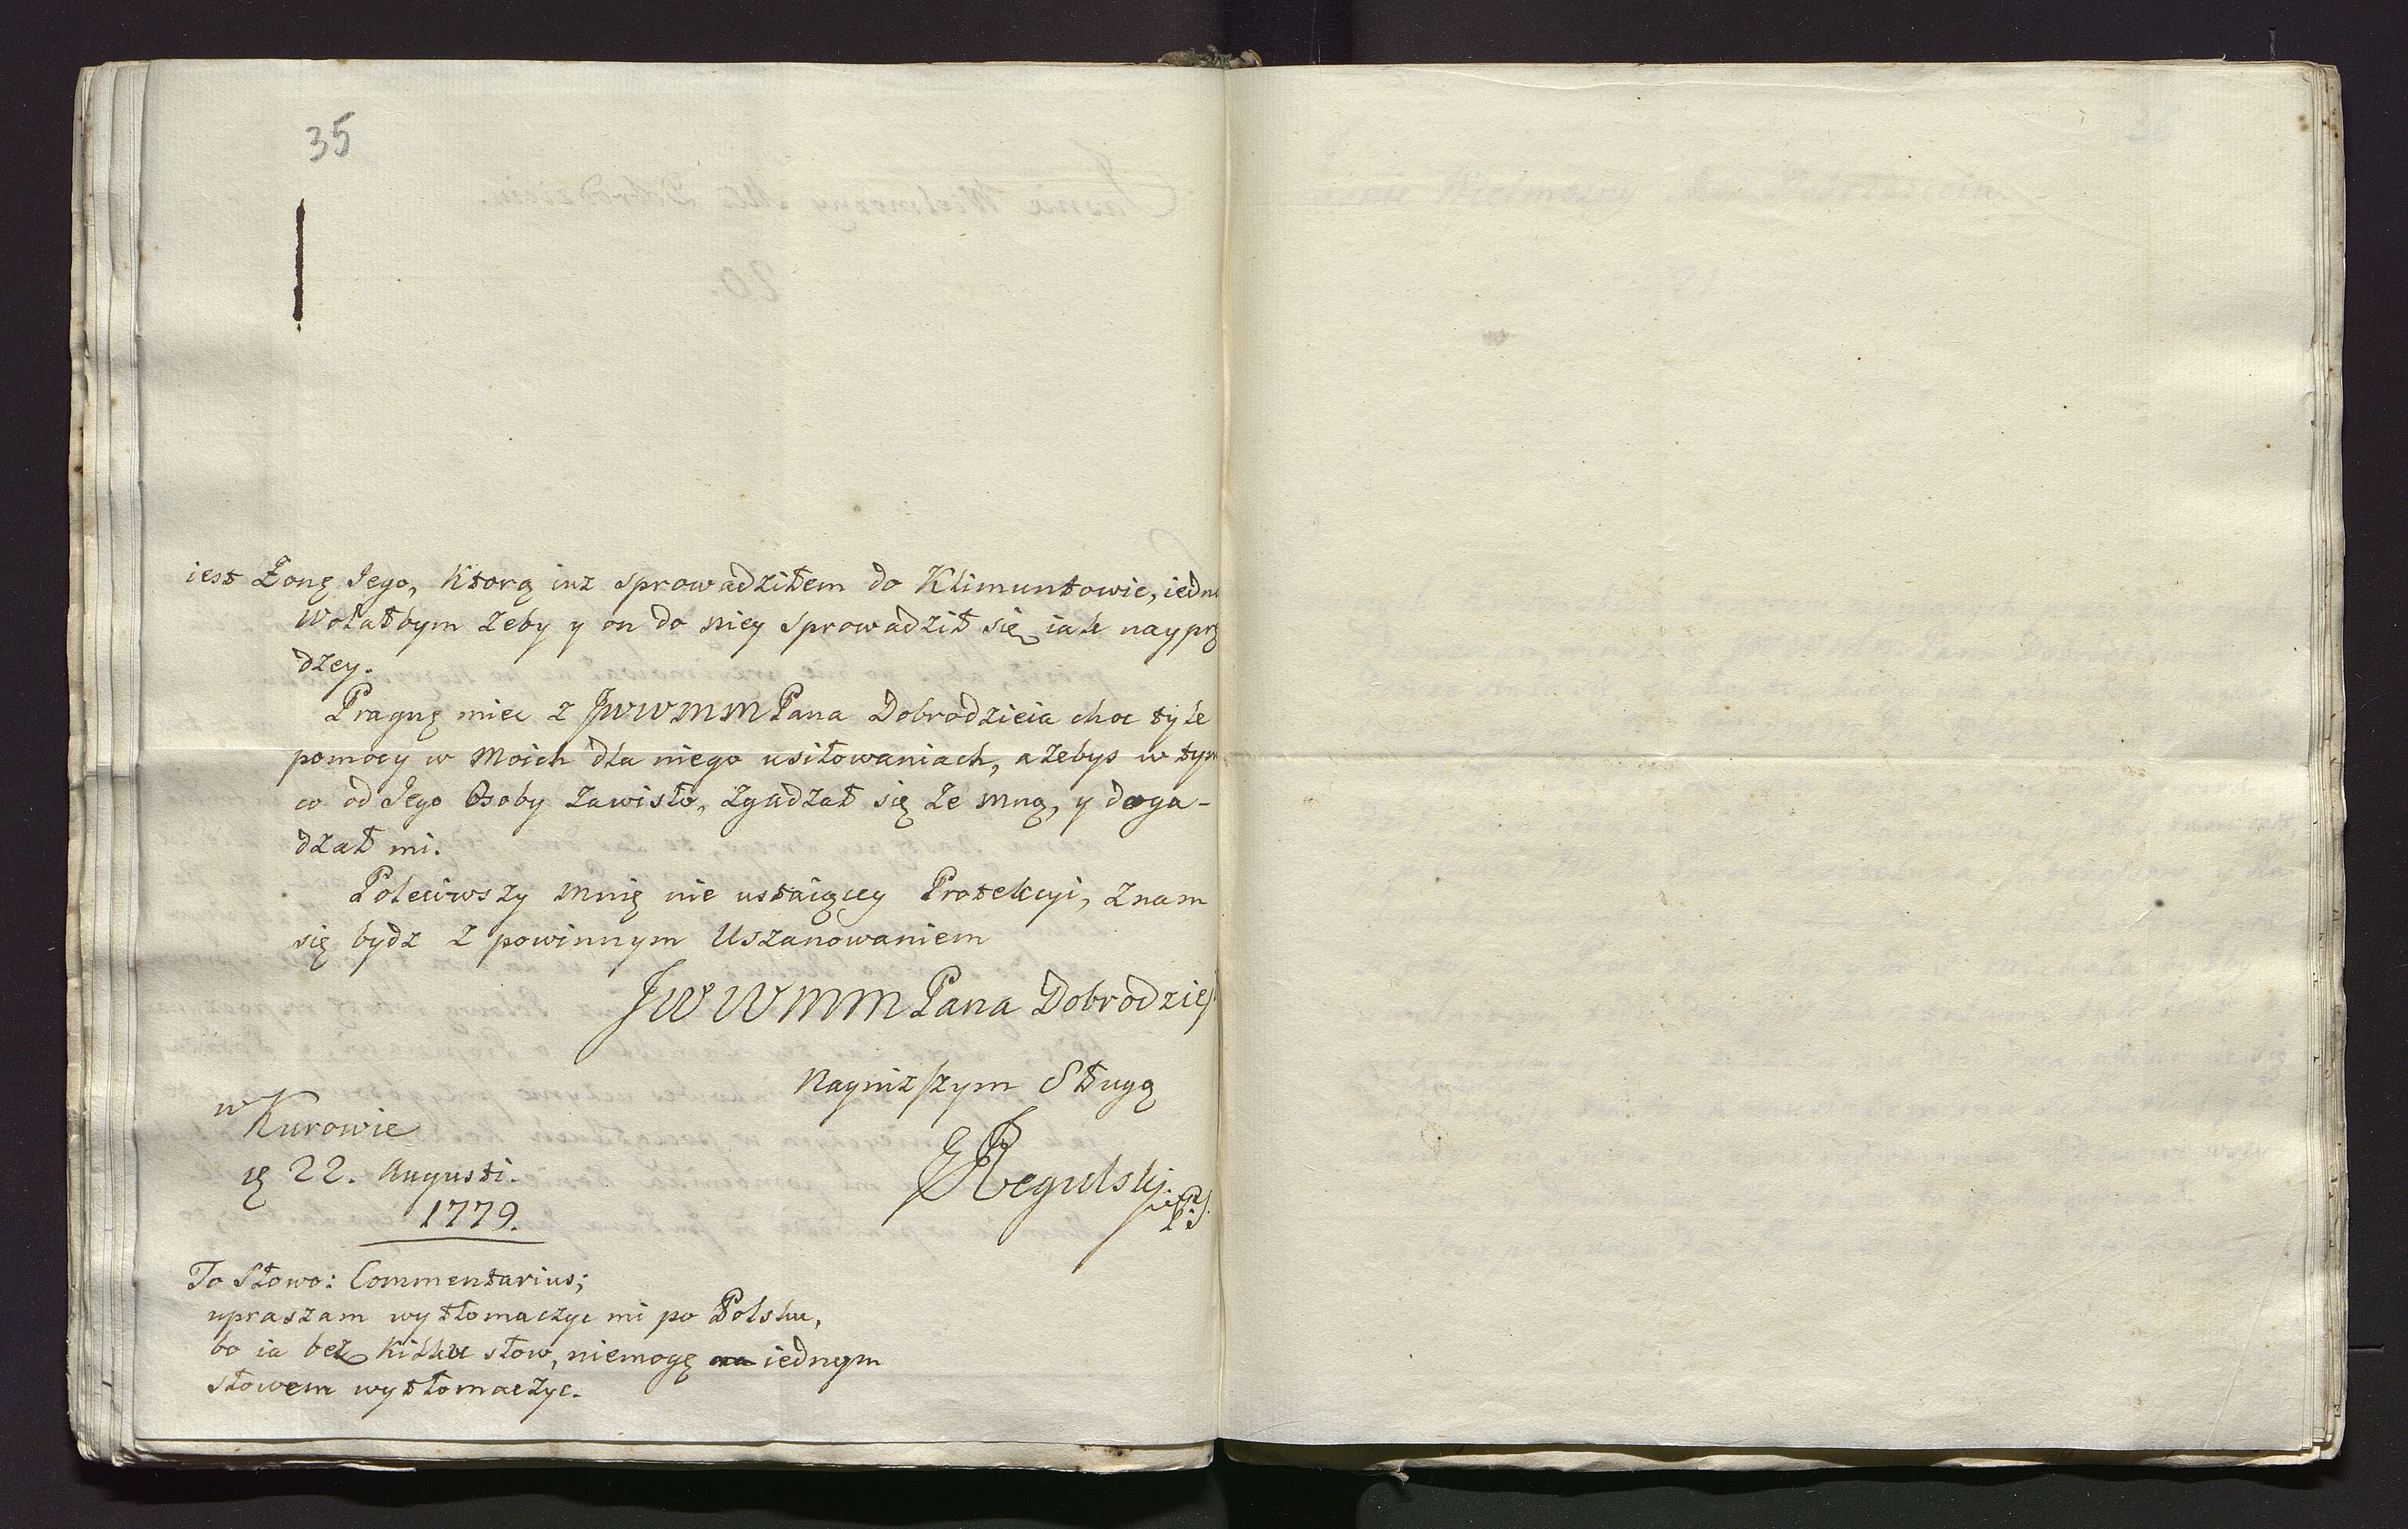 35
iest Zonę Jego, Ktorą iuz sprowadziłem do Klimuntowic, iedn
Wolałbym Zeby y on do niey Sprowadził się iak nayprę
dzey.
Pragnę miec z JWWMM Pana Dobrodzieia choc tyle
pomocy w Moich dla niego usiłowaniach, azebys w tym
co od Jego Osoby Zawisło, zgadzał się ze mną, y doga-
dzał mi.
Poleciwszy mnię nie ustaiącey Protekcyi, znam
się bydz z powinnym Uszanowaniem
JWWMM Pana Dobrodziej
Nayniższym Sługą
w Kurowie
ERegulski
22. Augusti.
1779.
To Słowo: Commentarius;
upraszam wytłomaczyc mi po Polsku,
bo ia bez Kilku słow, niemogę iednym
słowem wytłomaczyc.